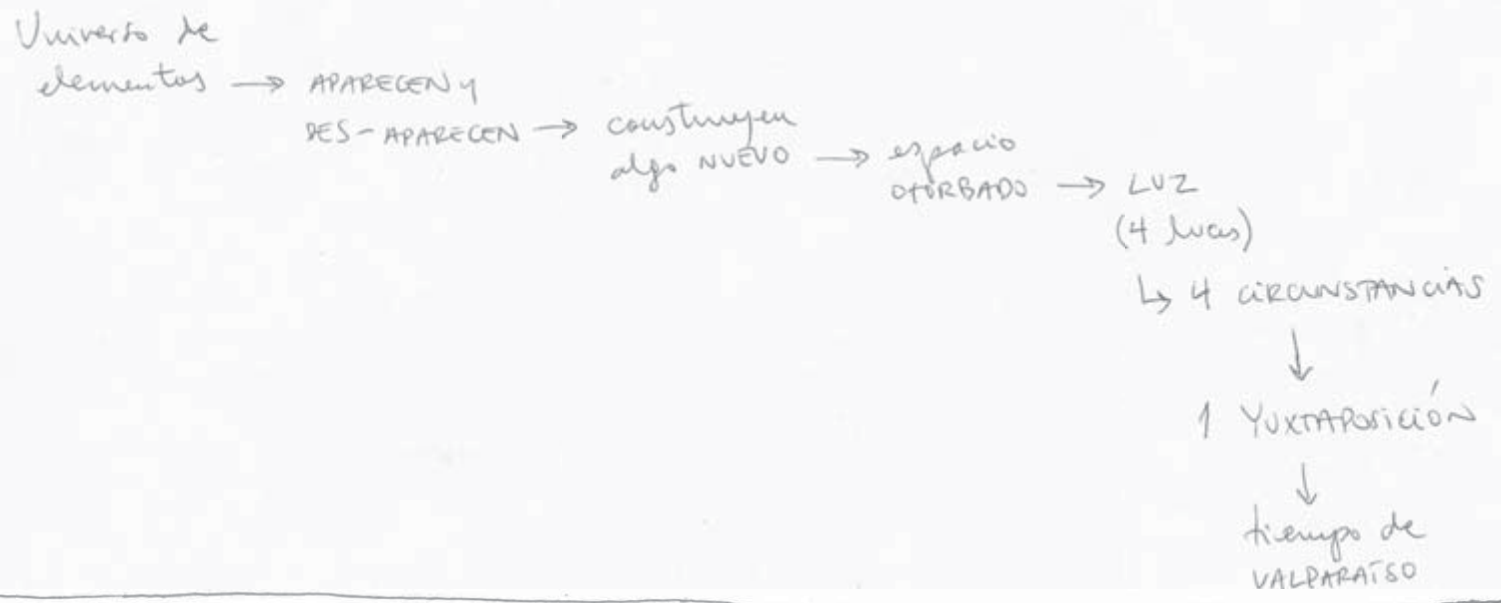 Universo de
elementos → APARECEN y
DES-APARECEN → construyen
algo NUEVO → espacio
OTORBADO → LUZ
(4 luces)
↳ 4 CIRCUNSTANCIAS
↓
1 YUXTAPOSICIÓN
↓
tiempo de
VALPARAÍSO